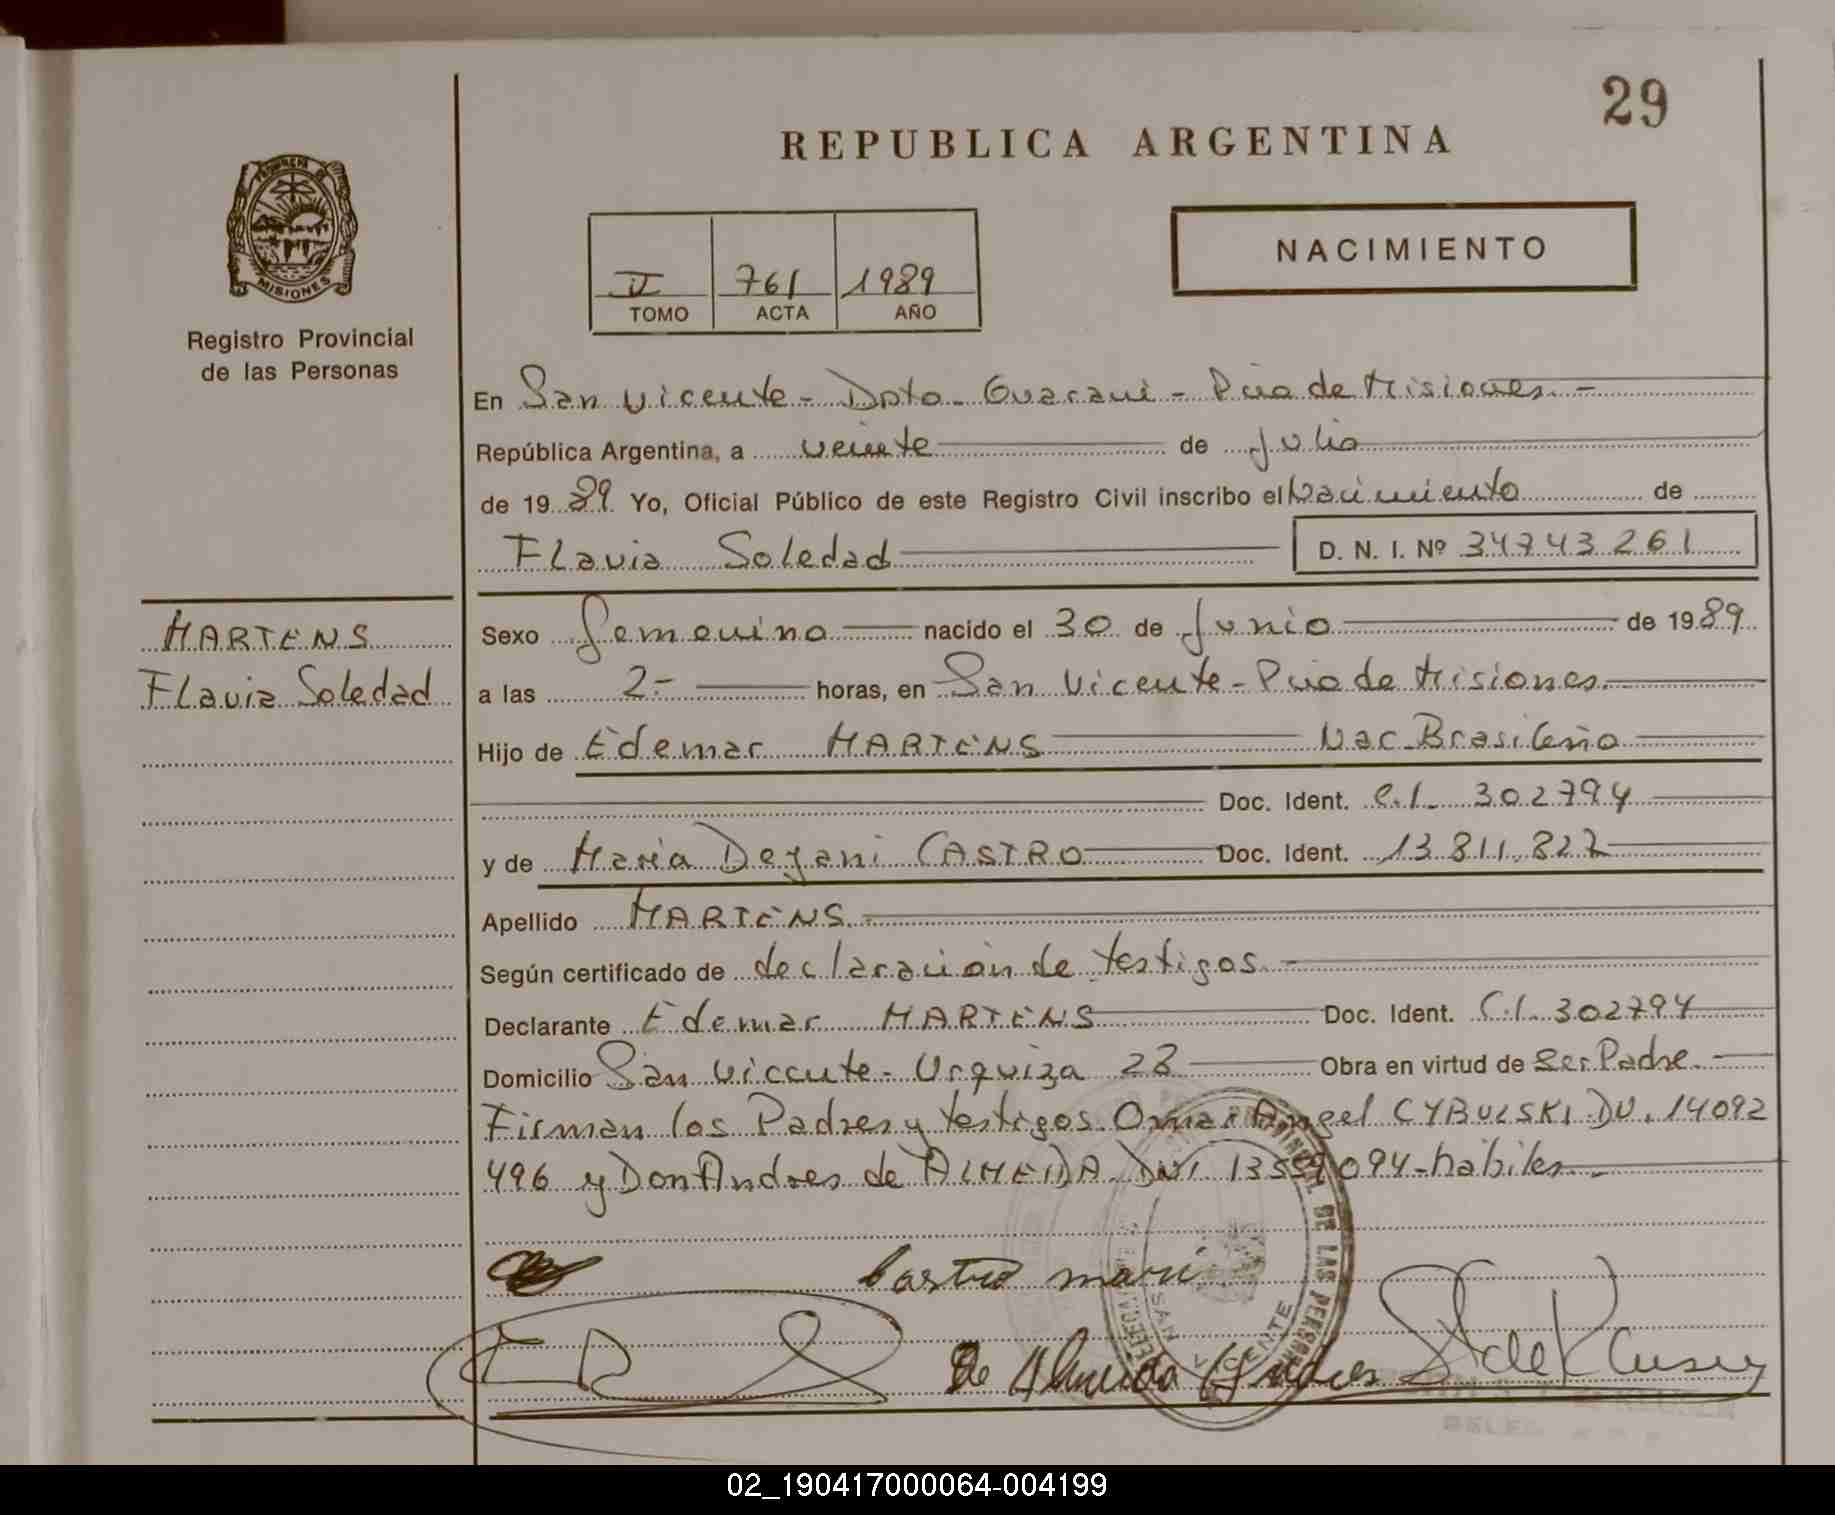 29
REPUBLICA ARGENTINA
PROVINCIA DE
MISIONES
Registro Provincial
de las Personas
II 761 1989
TOMO ACTA AÑO
NACIMIENTO
En San Vicente - Dpto. Guaraní - Pcia de Misiones. -
República Argentina, a veinte de Julio
de 1989 Yo, Oficial Público de este Registro Civil inscribo el Nacimiento de
Flavia Soledad D. N. I. Nº 34743261
MARTENS
Flavia Soledad
Sexo Femenino nacido el 30 de Junio de 1989
a las 2.- horas, en San Vicente - Pcia de Misiones.
Hijo de Edemar MARTENS Nac. Brasileño
Doc. Ident. C.I. 302794
y de Maria Deyani CASTRO Doc. Ident. 13.811.827
Apellido MARTENS.
Según certificado de declaración de testigos. -
Declarante Edemar MARTENS Doc. Ident. C.I. 302794
Domicilio San Vicente - Urquiza 28 Obra en virtud de Ser Padre. -
Firman los Padres y testigos. Omar Angel CYBULSKI DU. 14092
496 y Don Andres de ALMEIDA DNI 13559094 - habiles -
Castro mari
De Almeida Andres
DE LAS PERSONAS
SAN VICENTE
02_190417000064-004199